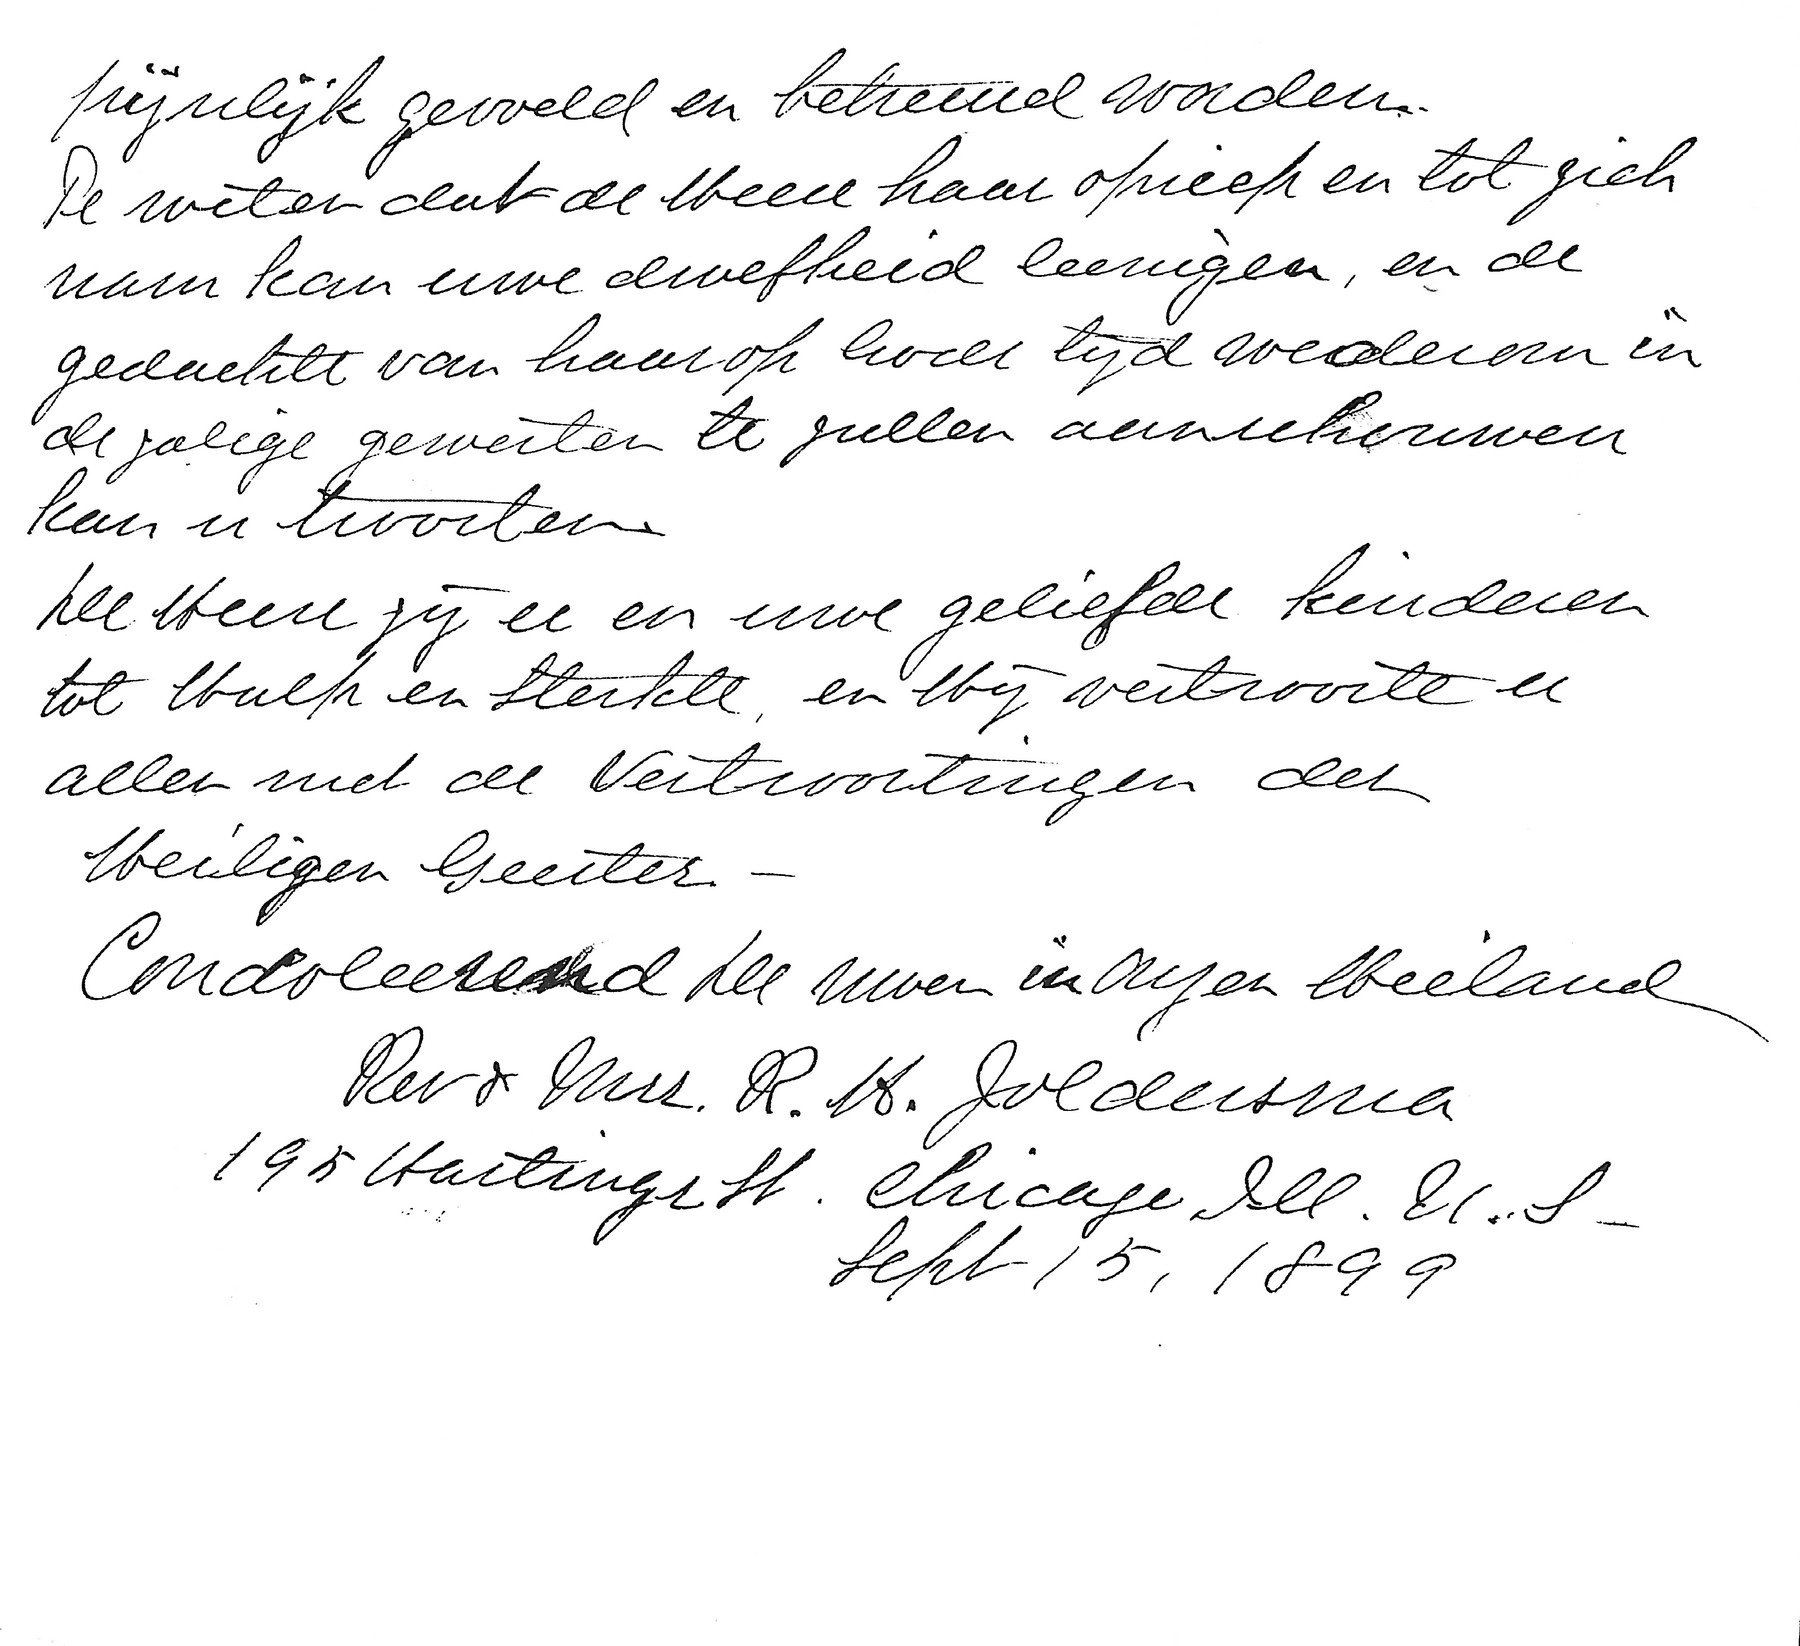 pijnlijk gevoeld en betreurd worden.
Te weten dat de Heere haar opriep en tot zich
nam kan uwe droefheid leenigen, en de
gedachte van haar op hoor tijd wederom in
de zalige gewesten te zullen aanschouwen
kan u troosten.
De Heere zij u en uwe geliefde kinderen
tot Hulp en Sterkte, en Hij vertrooste u
allen met de Vertroostingen des
Heiligen Geestes. —
Condoleerend de uwen in Onzen Heiland
Rev & Mrs. R. H. Joldersma
195 Hastings St. Chicago Ill. U.S —
Sept 15, 1899